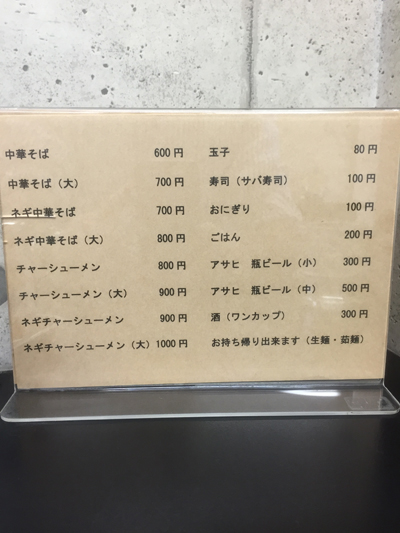 中華そば 600円
中華そば（大） 700円
ネギ中華そば 700円
ネギ中華そば（大） 800円
チャーシューメン 800円
チャーシューメン（大） 900円
ネギチャーシューメン 900円
ネギチャーシューメン（大） 1000円
玉子 80円
寿司（サバ寿司） 100円
おにぎり 100円
ごはん 200円
アサヒ 瓶ビール（小） 300円
アサヒ 瓶ビール（中） 500円
酒（ワンカップ） 300円
お持ち帰り出来ます（生麺・茹麺）